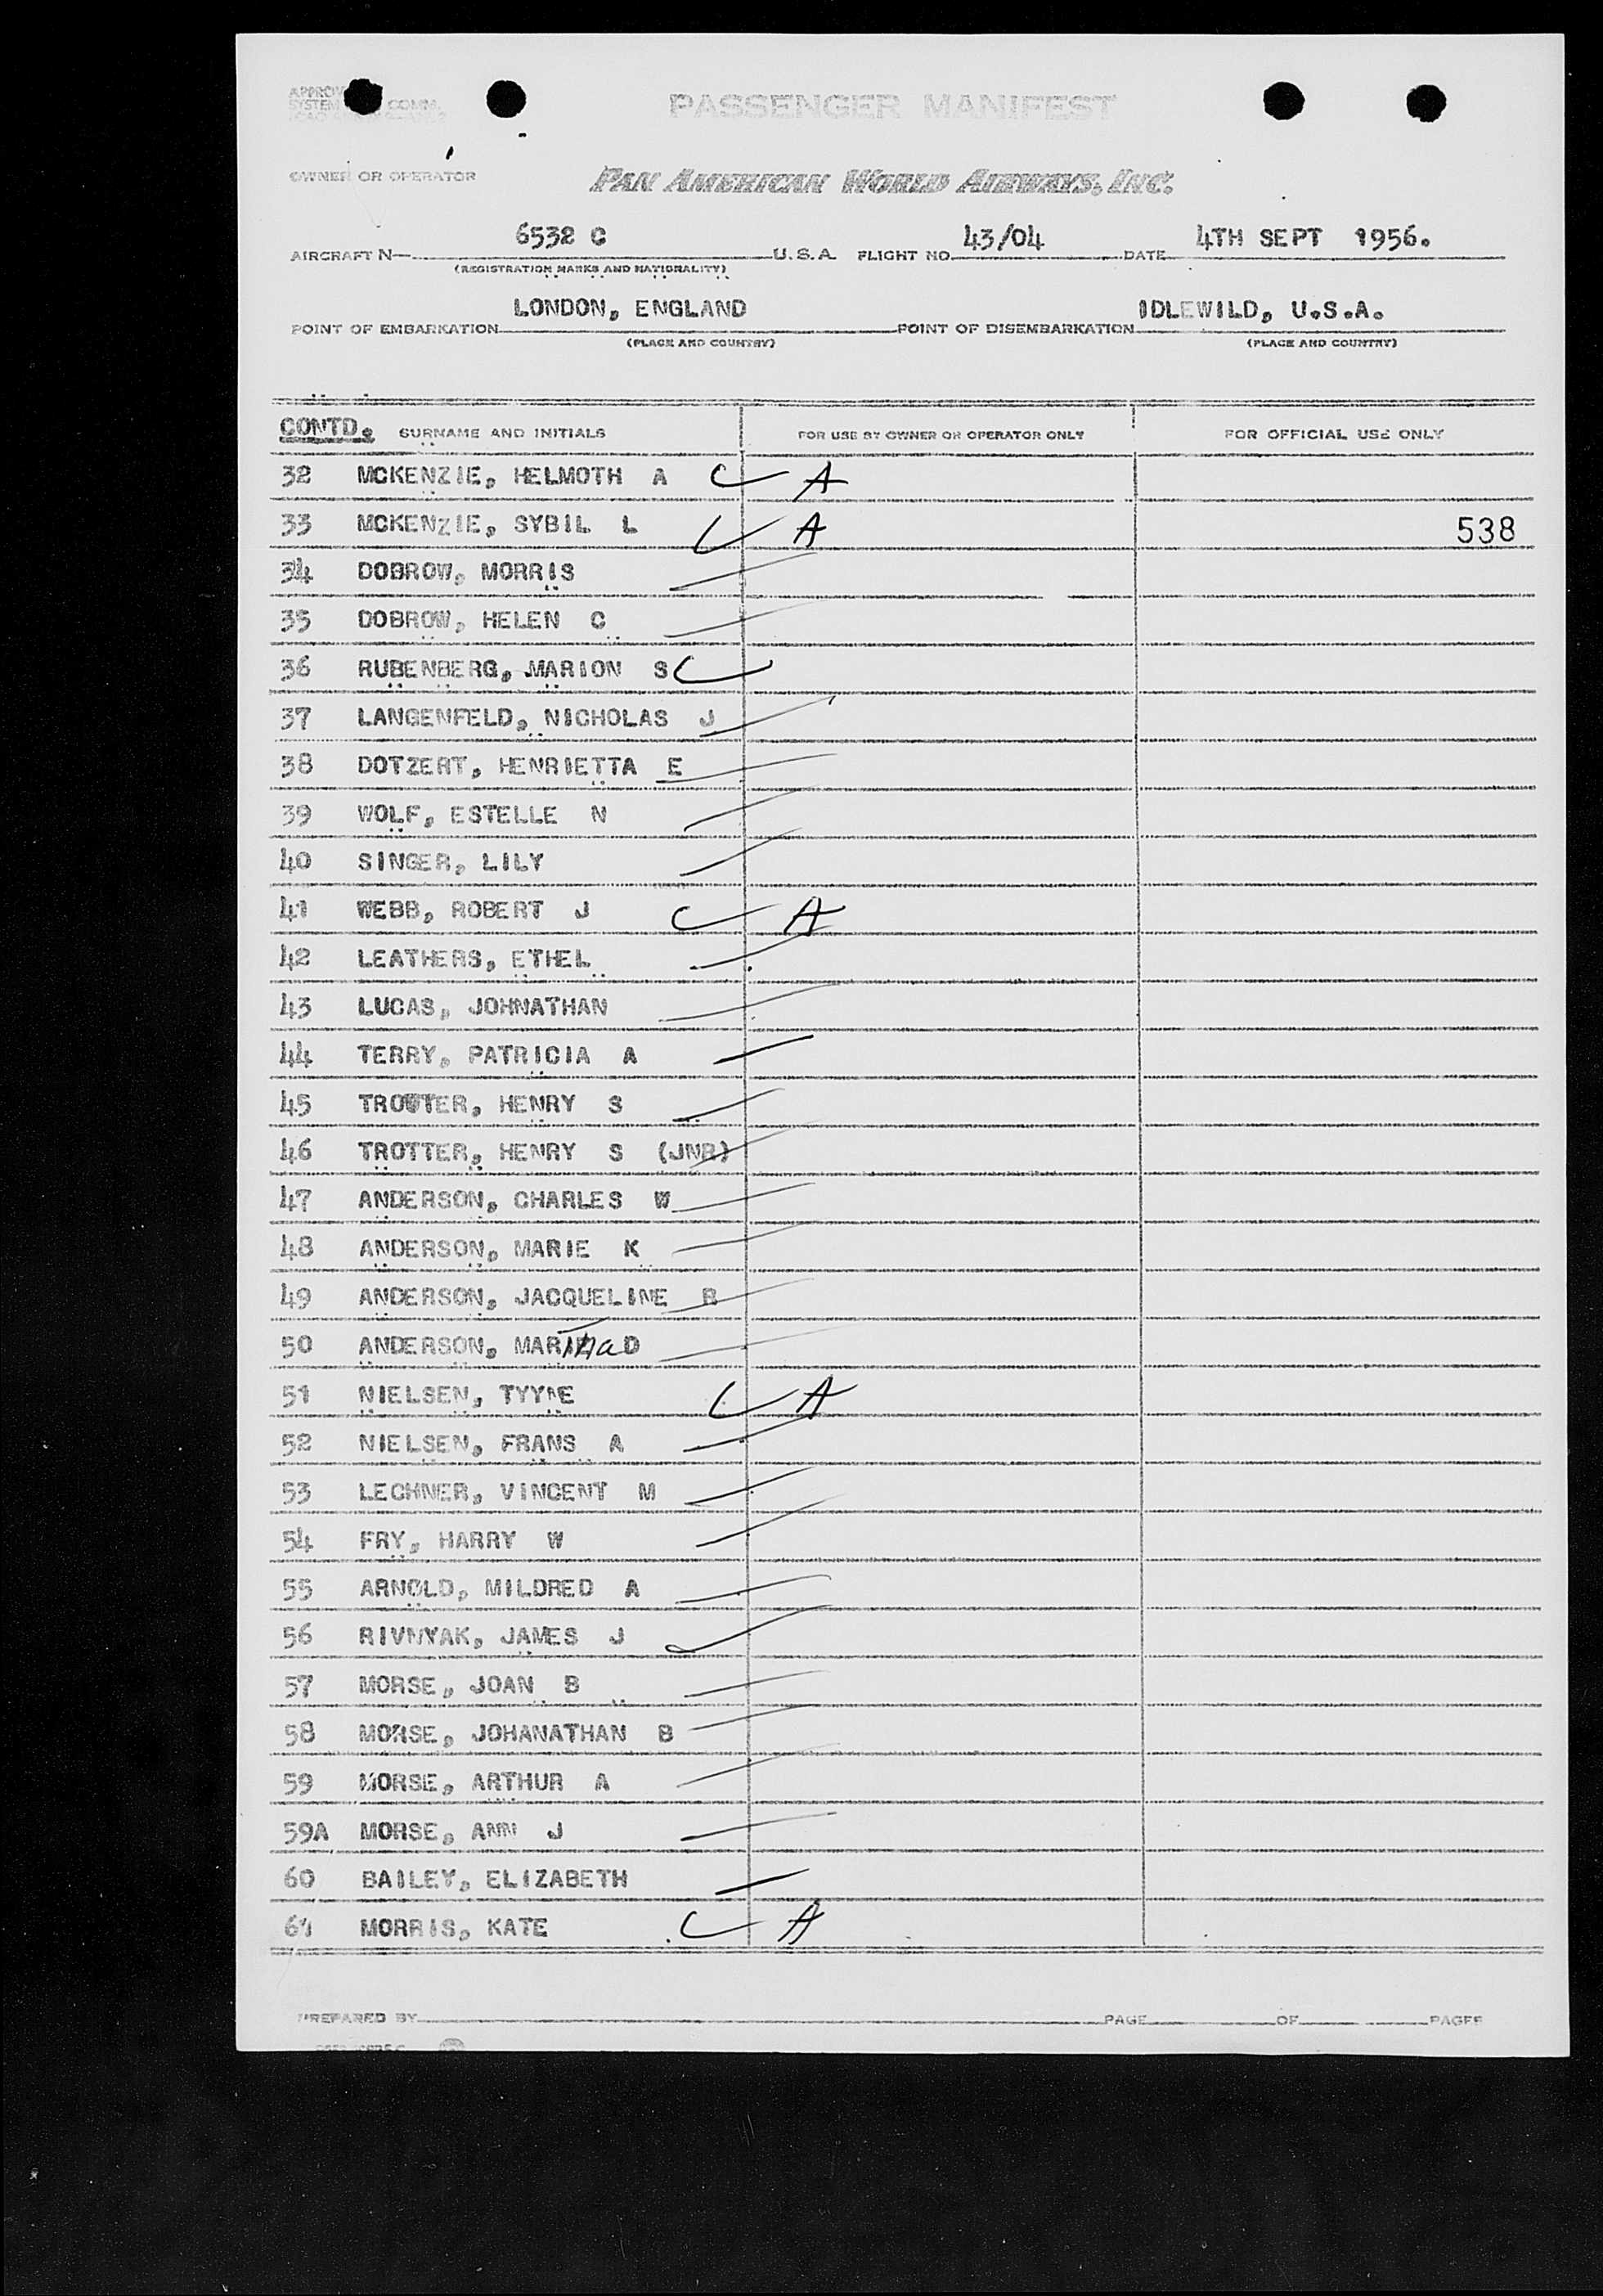 PASSENGER MANIFEST
OWNER OR OPERATOR PAN AMERICAN WORLD AIRWAYS, INC.
AIRCRAFT N— 6532 C U.S.A. FLIGHT NO. 43/04 DATE 4TH SEPT 1956.
(REGISTRATION MARKS AND NATIONALITY)
POINT OF EMBARKATION LONDON, ENGLAND POINT OF DISEMBARKATION IDLEWILD, U.S.A.
(PLACE AND COUNTRY) (PLACE AND COUNTRY)
CONTD. SURNAME AND INITIALS FOR USE BY OWNER OR OPERATOR ONLY FOR OFFICIAL USE ONLY
32 MCKENZIE, HELMOTH A C A
33 MCKENZIE, SYBIL L C A 538
34 DOBROW, MORRIS
35 DOBROW, HELEN C
36 RUBENBERG, MARION S C
37 LANGENFELD, NICHOLAS J
38 DOTZERT, HENRIETTA E
39 WOLF, ESTELLE N
40 SINGER, LILY
41 WEBB, ROBERT J C A
42 LEATHERS, ETHEL
43 LUCAS, JOHNATHAN
44 TERRY, PATRICIA A
45 TROTTER, HENRY S
46 TROTTER, HENRY S (JNR)
47 ANDERSON, CHARLES W
48 ANDERSON, MARIE K
49 ANDERSON, JACQUELINE B
50 ANDERSON, MARTHA D
51 NIELSEN, TYYNE C A
52 NIELSEN, FRANS A
53 LECHNER, VINCENT M
54 FRY, HARRY W
55 ARNOLD, MILDRED A
56 RIVNYAK, JAMES J
57 MORSE, JOAN B
58 MORSE, JOHANATHAN B
59 MORSE, ARTHUR A
59A MORSE, ANN J
60 BAILEY, ELIZABETH
61 MORRIS, KATE C A
PREPARED BY PAGE OF PAGES